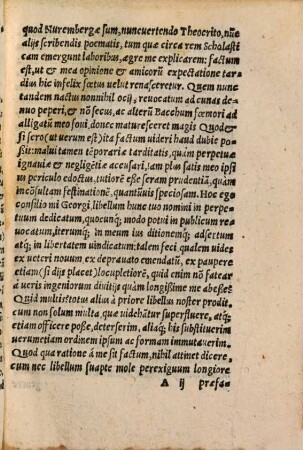 quod Nurembergæ sum, nunc uertendo Theocrito, nũc
alijs scribendis poematis, tum quæ circa rem Scholasti
cam emergunt laboribus, ægre me explicarem: factum
est, ut & mea opinione & amicorũ expectatione tar
dius hic infelix fœtus uelut renasceretur. Quem nunc
tandem nactus nonnihil ocij, reuocatum ad cunas de
nuo peperi, & nõ secus, ac alterũ Bacchum fœmori ad
alligatũ meo foui, donec maturesceret magis Quod &
si sero (ut uerum est) ita factum uideri haud dubie pos
sit: malui tamen tẽporariæ tarditatis, quàm perpetuæ
ignauiæ & negligẽtiæ accusari, iam plus satis meo ipsi
us periculo edoctus, tutiorẽ esse seram prudentiã, quàm
incõsultam festinationẽ, quantũuis speciosam. Hoc ego
consilio mi Georgi, libellum hunc tuo nomini in perpe
tuum dedicatum, quocunq; modo potui in publicum re
uocatum, iterumq; in meum ius ditionemq; adsertum
atq; in libertatem uindicatum: talem feci qualem uides
ex ueteri nouum ex deprauato emendatũ, ex paupere
etiam (si dijs placet) locupletiorẽ, quid enim nõ fatear
à ueris ingeniorum diuitijs quàm longißime me abeße:
Quid multis: totus alius à priore libellus noster prodit,
cum non solum multa, quæ uidebãtur superfluere, atq;
etiam officere poße, deterserim, aliaq; his substituerim
uerumetiam ordinem ipsum ac formam immutauerim.
Quod qua ratione à me sit factum, nihil attinet dicere,
cum nec libellum suapte mole perexiguum longiore
A ij præfa⸗